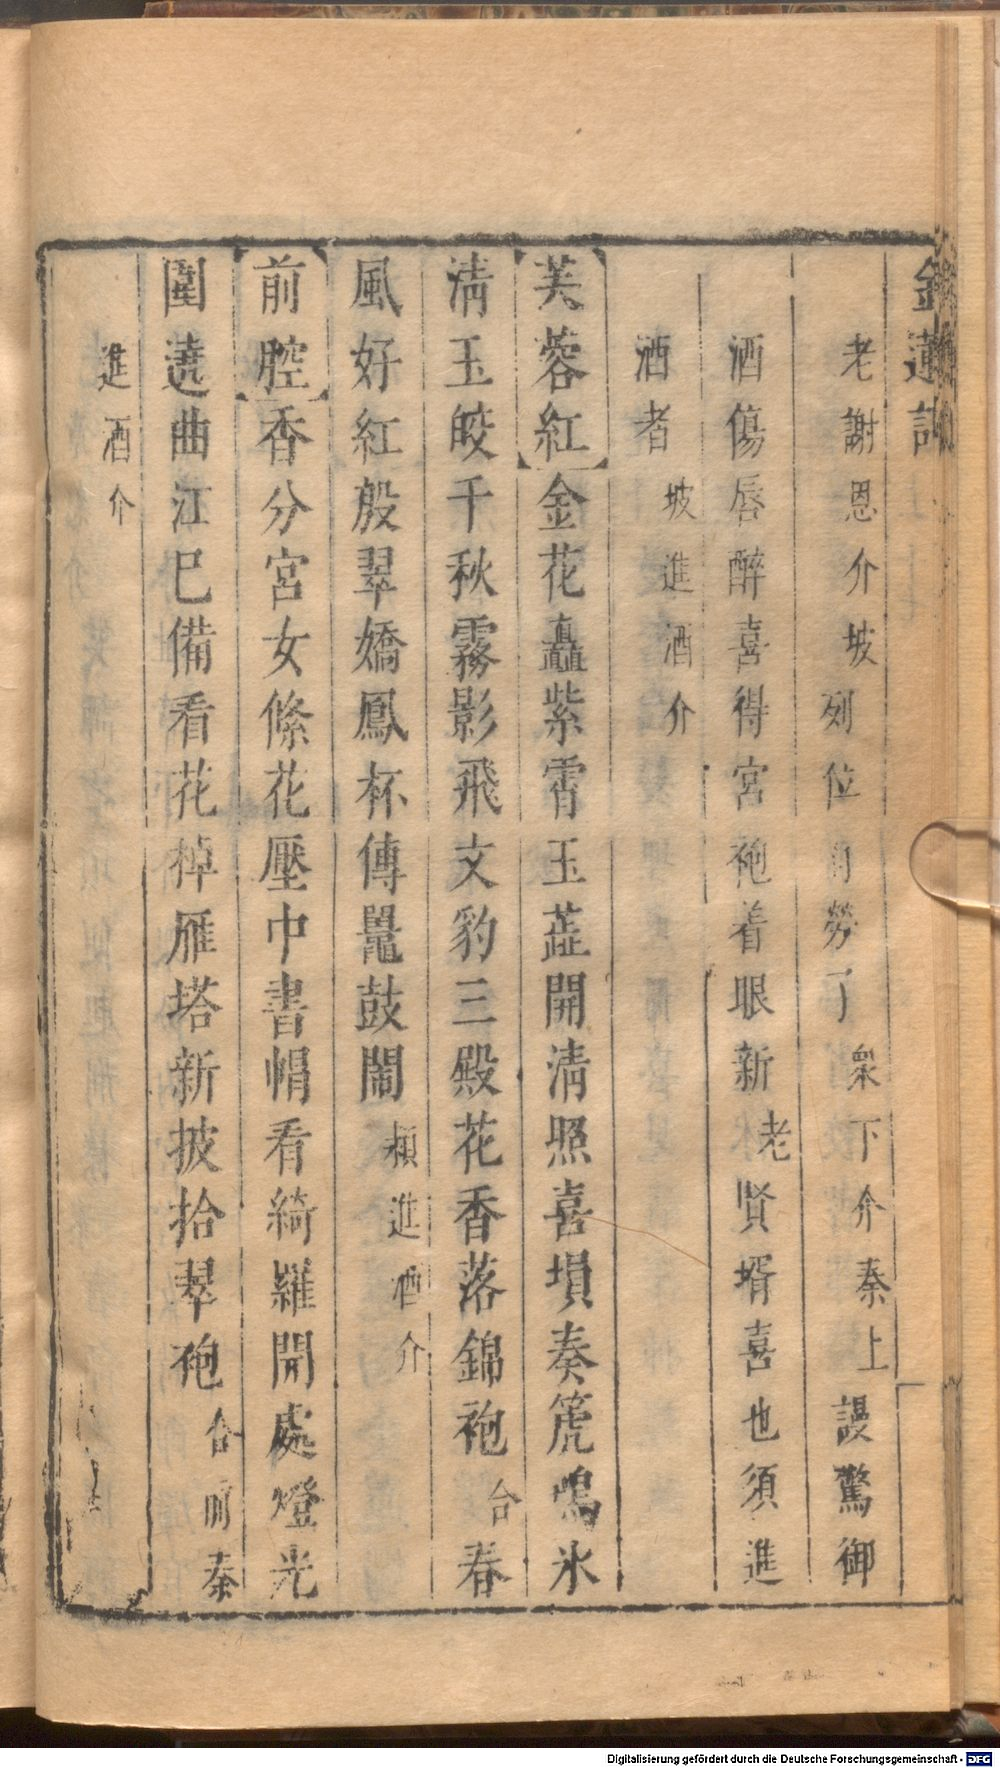 金蓮記
老謝恩介坡列位有勞了衆下介秦上謾驚御
酒傷唇醉喜得宮袍着眼新老賢壻喜也須進
酒者坡進酒介
芙蓉紅金花矗紫霄玉蕋開淸照喜塤奏篪鳴氷
淸玉皎千秋霧影飛文豹三殿花香落錦袍合春
風好紅殷翠嬌鳳杯傳鼍鼓鬧頛進酒介
前腔香分宮女絛花壓中書帽看綺羅開處燈光
圍遶曲江巳備看花棹雁塔新披拾翠袍合前秦
進酒介
Digitalisierung gefördert durch die Deutsche Forschungsgemeinschaft - DFG